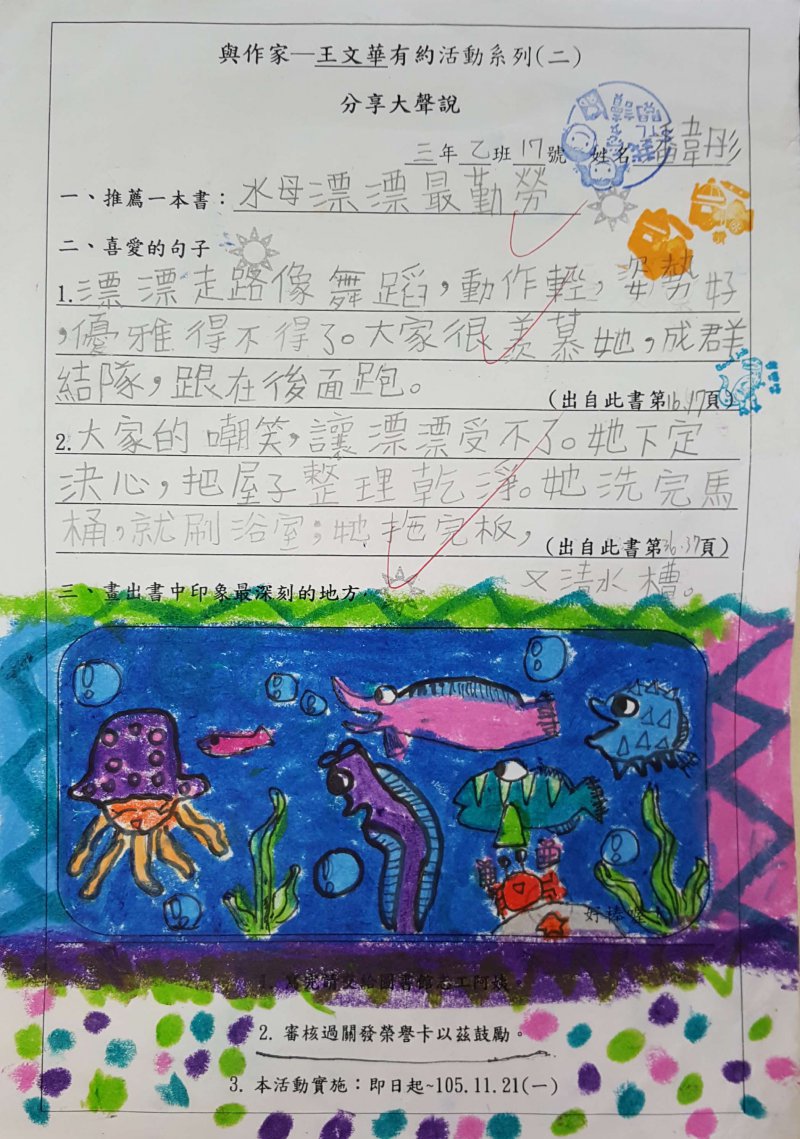 與作家—王文華有約活動系列(二)
分享大聲說
三年乙班17號 姓名 潘韋彤
一、推薦一本書：水母漂漂最勤勞
二、喜愛的句子
1.漂漂走路像舞蹈，動作輕，姿勢好
，優雅得不得了。大家很羨慕她，成群
結隊，跟在後面跑。
(出自此書第16.17頁)
2.大家的嘲笑，讓漂漂受不了。她下定
決心，把屋子整理乾淨。她洗完馬
桶，就刷浴室；她拖完板，
(出自此書第36.37頁)
又清水槽。
三、畫出書中印象最深刻的地方
Good Job
好棒
1. 寫完請交給圖書館志工阿姨。
2. 審核過關發榮譽卡以茲鼓勵。
3. 本活動實施：即日起~105.11.21(一)